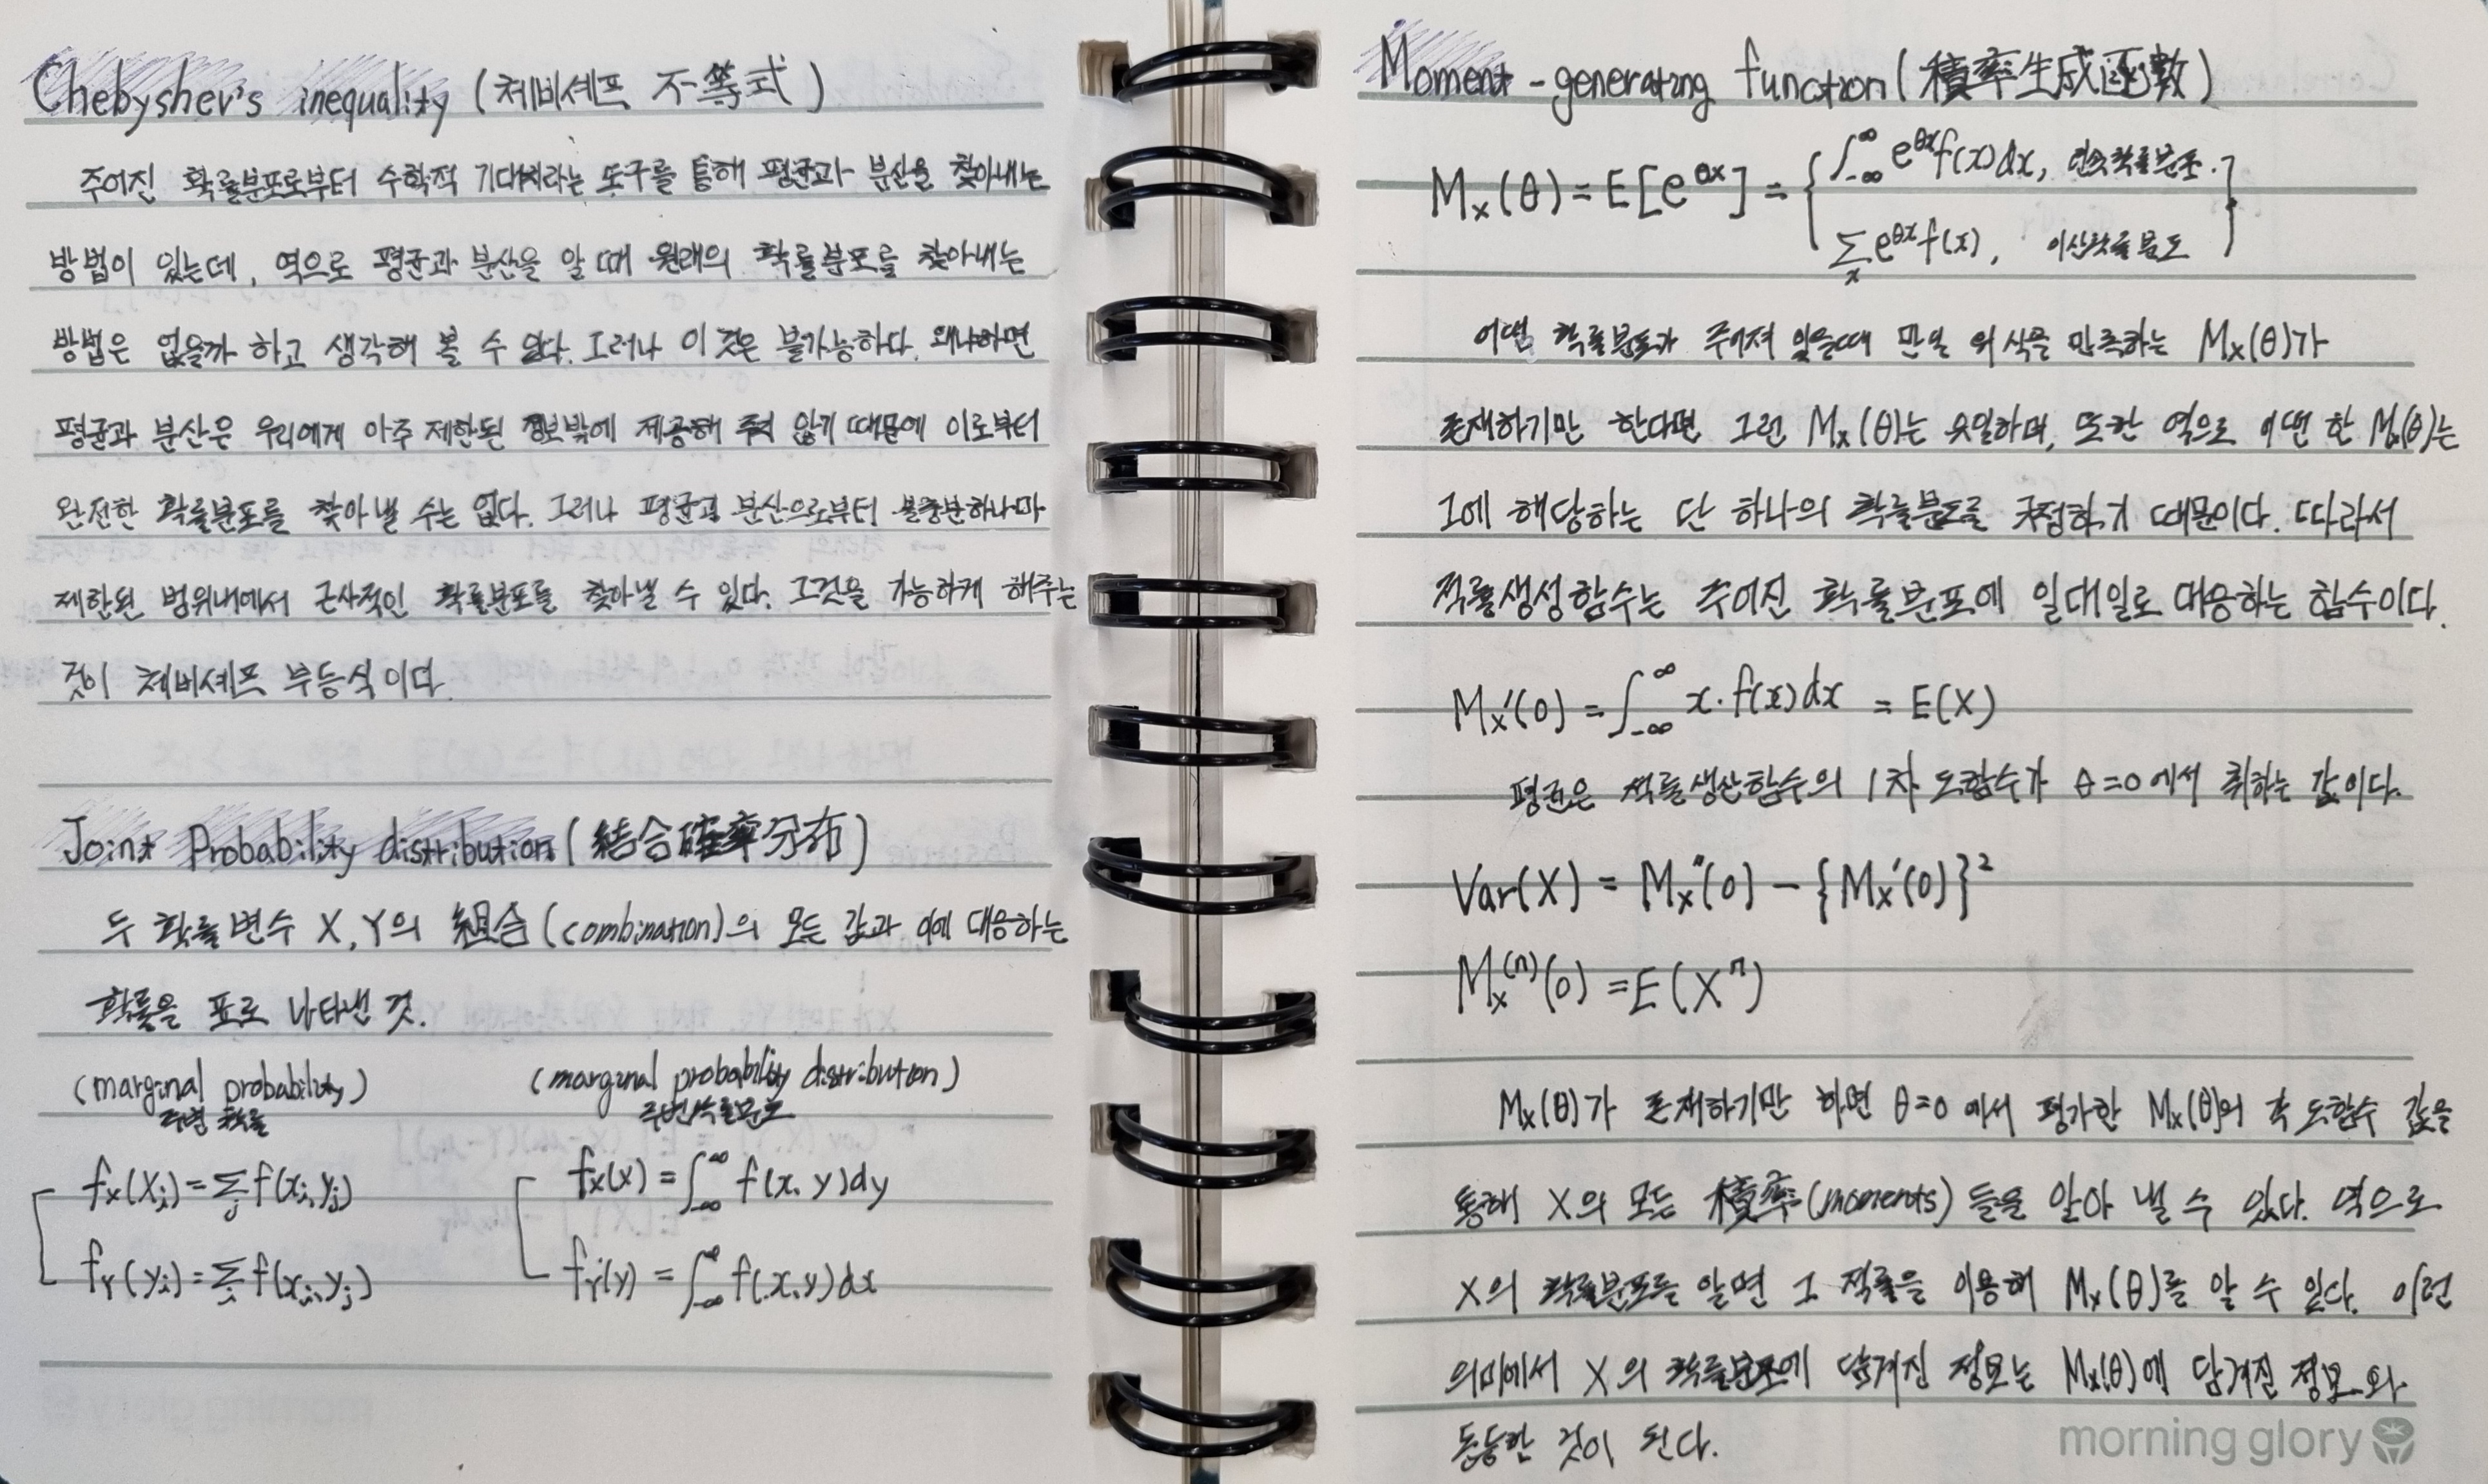 Chebyshev's inequality (체비셰프 不等式)
주어진 확률분포로부터 수학적 기대치라는 도구를 통해 평균과 분산을 찾아내는
방법이 있는데, 역으로 평균과 분산을 알 때 원래의 확률분포를 찾아내는
방법은 없을까 하고 생각해 볼 수 있다. 그러나 이 것은 불가능하다. 왜냐하면
평균과 분산은 우리에게 아주 제한된 정보밖에 제공해 주지 않기 때문에 이로부터
완전한 확률분포를 찾아낼 수는 없다. 그러나 평균과 분산으로부터 불충분하나마
제한된 범위내에서 근사적인 확률분포를 찾아낼 수 있다. 그것을 가능하게 해주는
것이 체비셰프 부등식이다.
Joint Probability distribution (結合確率分布)
두 확률변수 X, Y의 組合(combination)의 모든 값과 이에 대응하는
확률을 표로 나타낸 것.
(marginal probability) (marginal probability distribution)
주변 확률 주변확률분포
fx(Xi) = Σj f(xi, yj) fx(x) = ∫-∞^∞ f(x, y)dy
fY(yi) = Σi f(xi, yj) fY(y) = ∫-∞^∞ f(x, y)dx
Moment-generating function (積率生成函數)
Mx(θ) = E[e^θx] = { ∫-∞^∞ e^θx f(x)dx, 연속확률분포.
Σx e^θx f(x), 이산확률분포 }
어떤 확률분포가 주어져 있을때 만일 위 식을 만족하는 Mx(θ)가
존재하기만 한다면 그런 Mx(θ)는 유일하며, 또한 역으로 어떤 한 Mx(θ)는
그에 해당하는 단 하나의 확률분포를 규정하기 때문이다. 따라서
적률생성함수는 주어진 확률분포에 일대일로 대응하는 함수이다.
Mx'(0) = ∫-∞^∞ x·f(x)dx = E(X)
평균은 적률생산함수의 1차 도함수가 θ=0에서 취하는 값이다.
Var(X) = Mx''(0) - {Mx'(0)}²
Mx^(n)(0) = E(X^n)
Mx(θ)가 존재하기만 하면 θ=0에서 평가한 Mx(θ)의 각 도함수 값을
통해 X의 모든 積率(moments)들을 알아 낼 수 있다. 역으로
X의 확률분포를 알면 그 적률을 이용해 Mx(θ)를 알 수 있다. 이런
의미에서 X의 확률분포에 담겨진 정보는 Mx(θ)에 담겨진 정보와
동등한 것이 된다.
morning glory